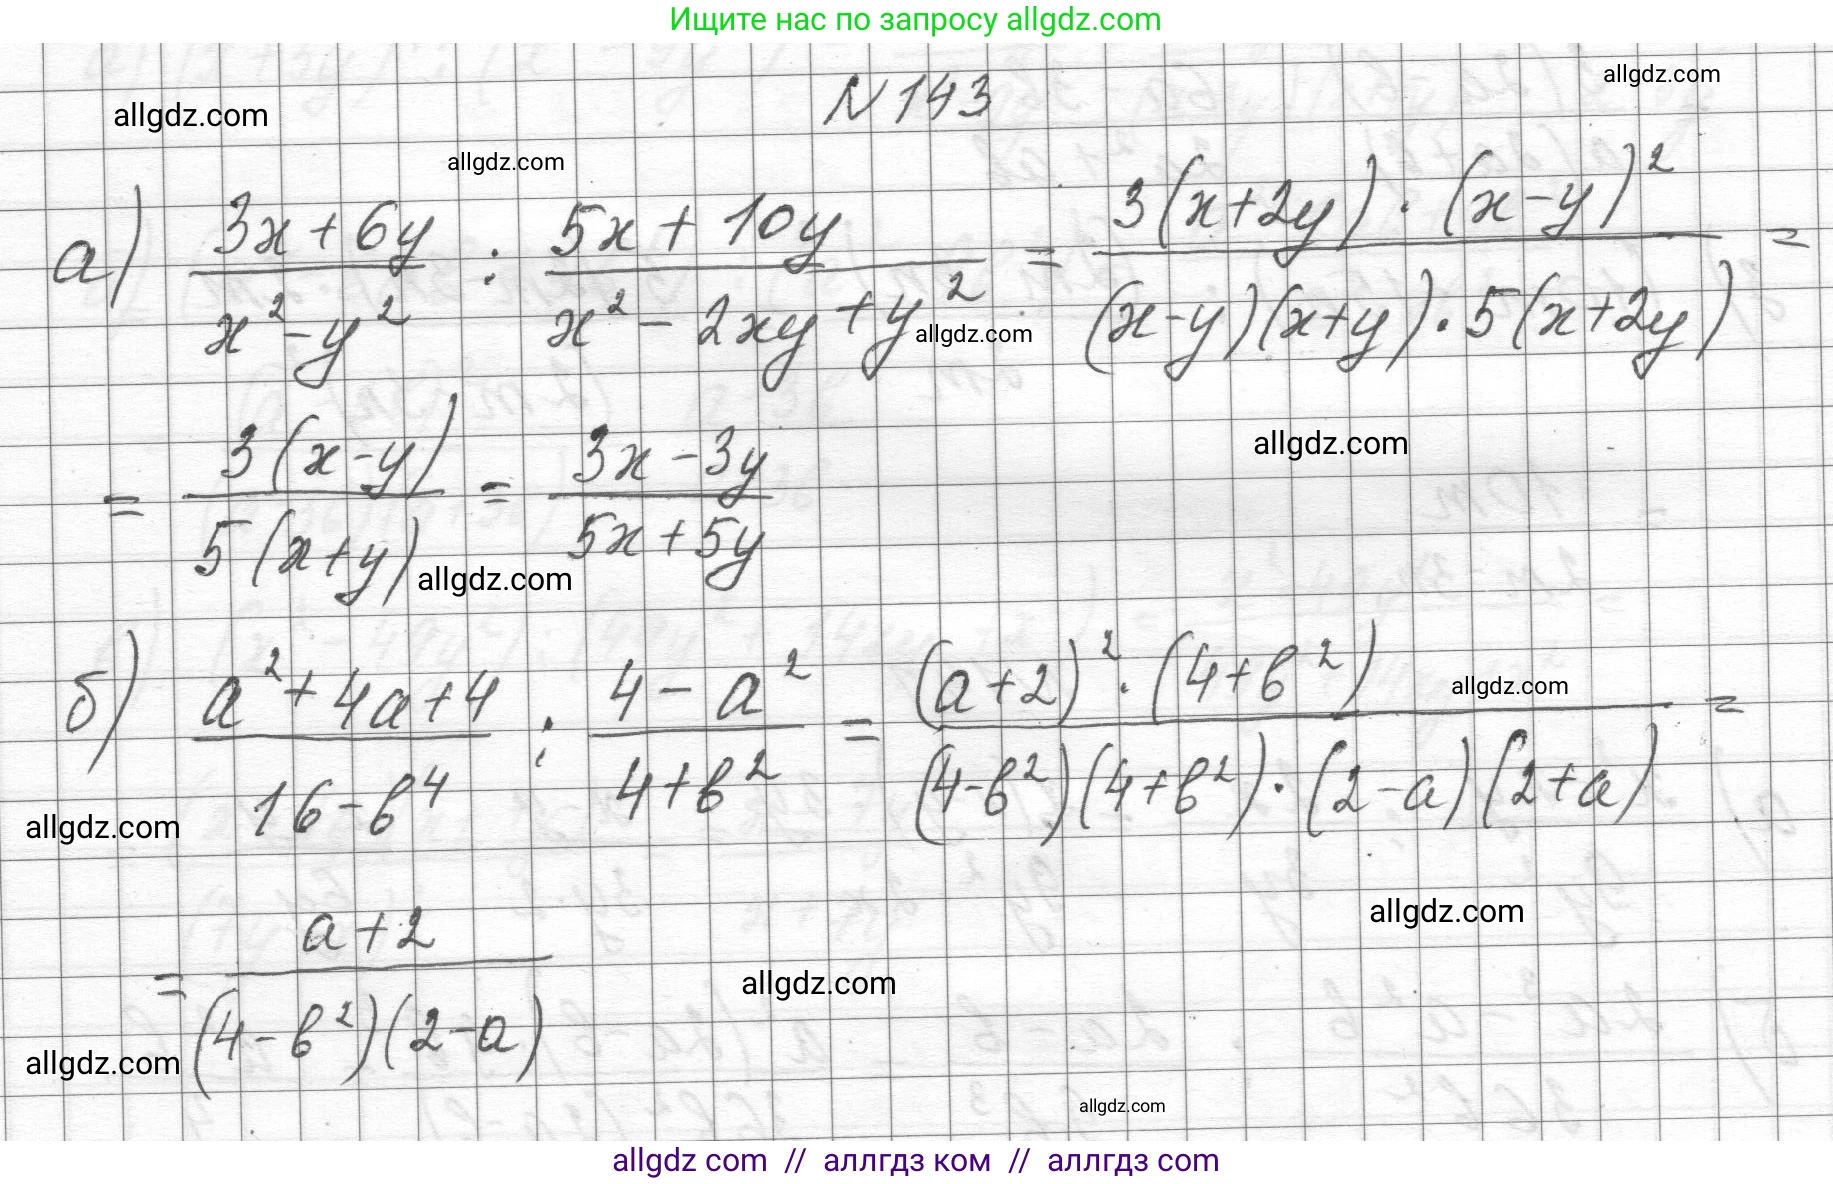 Ищите нас по запросу allgdz.com
allgdz.com
N 143
allgdz.com
allgdz.com
а) (3x + 6y)/(x² - y²) : (5x + 10y)/(x² - 2xy + y²) = (3(x+2y) · (x-y)²)/((x-y)(x+y) · 5(x+2y)) =
allgdz.com
allgdz.com
= (3(x-y))/(5(x+y)) = (3x - 3y)/(5x + 5y)
allgdz.com
б) (a² + 4a + 4)/(16 - b⁴) : (4 - a²)/(4 + b²) = ((a+2)² · (4+b²))/((4-b²)(4+b²) · (2-a)(2+a)) =
allgdz.com
allgdz.com
allgdz.com
= (a+2)/((4-b²)(2-a))
allgdz.com
allgdz.com
allgdz.com
allgdz com // аллгдз ком // аллгдз com